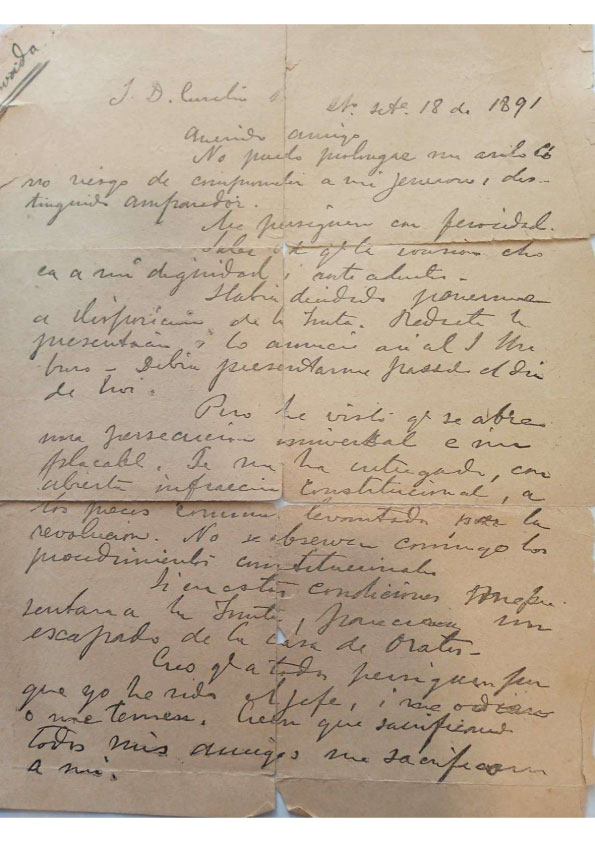 S. D. Eusebio
18 de 1891
Querido amigo
No puedo prolongar mi asilo
riesgo de comprometer a mi jeneroso i dis-
tinguido amparador.
Me persiguen con ferocidad.
Sabe Ud qe la evasion cho
ca a mi dignidad i
Habia decidido ponerme
a disposición de la Junta. Redacté la
presentacion i lo anuncié asi al S Uri
buru - Debia presentarme pasado el dia
de hoi.
Pero he visto qe se abre
una persecucion universal e im
placable. Se me ha entregado, con
abierta infraccion constitucional, a
los jueces comunes levantados la
revolucion. No se observan conmigo los
procedimientos constitucionales
Si en estas condiciones me pre
sentara a la Junta, pareceria un
escapado de la Casa de Orates-
Creo qe a todos persiguen por
que yo he sido el jefe, i me odian
o me temen. Creen que sacrificando
todos mis amigos me sacrifican
a mi.